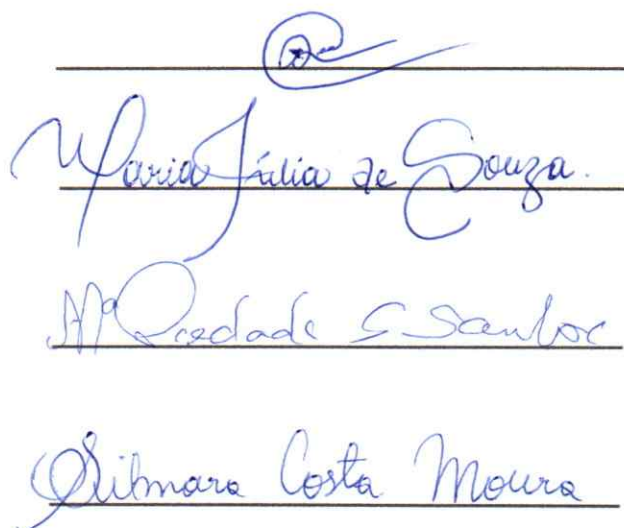 Maria Júlia de Souza.
Mª Piedade S Santos
Silmara Costa Moura